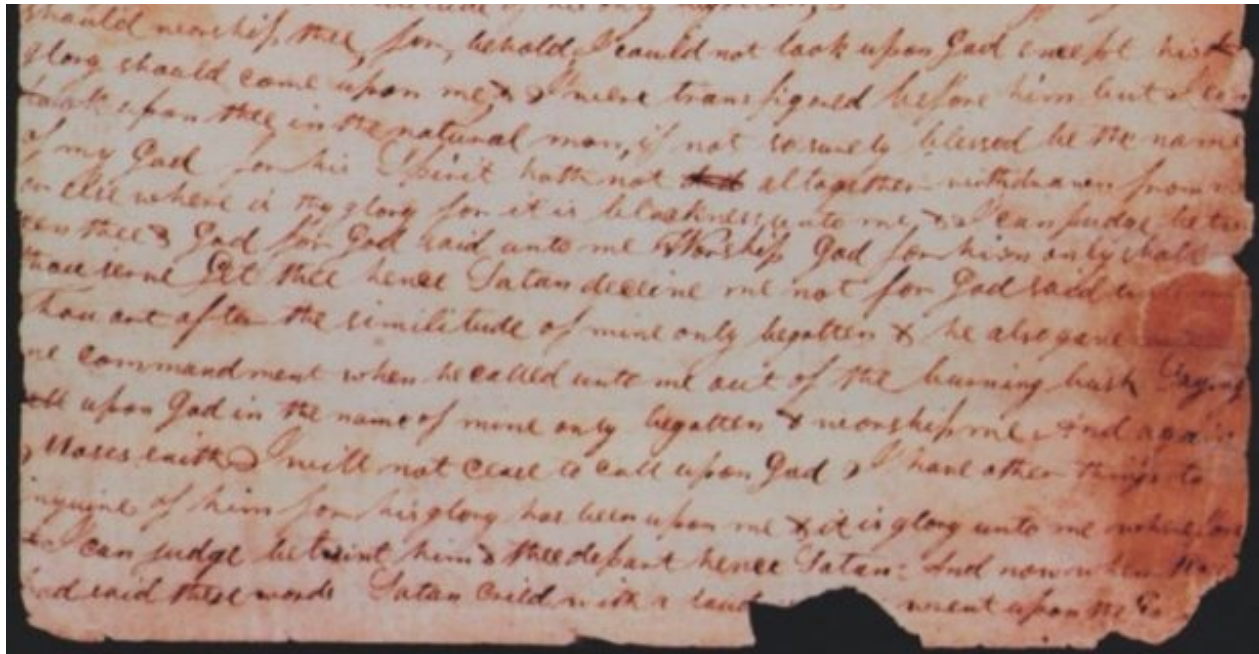 of his only begotten,
should worship thee, for, behold, I could not look upon God except his
glory should come upon me, & I were transfigured before him but I can
look upon thee, in the natural man, if not so surely blessed be the name
of my God for his Spirit hath not altogether withdrawn from me
or else where is thy glory for it is blackness unto me & I can judge betw
een thee & God for God said unto me Worship God for him only shalt
thou serve Get thee hence Satan deceive me not for God said unto me
Thou art after the similitude of mine only begotten & he also gave
me commandment when he called unto me out of the burning bush Saying
call upon God in the name of mine only begotten & worship me. And again
Moses saith I will not cease to call upon God I have other things to
inquire of him for his glory has been upon me & it is glory unto me wherefore
I can judge betwixt him & thee depart hence Satan: And now when Mos
had said these words Satan cried with a loud went upon the Ea